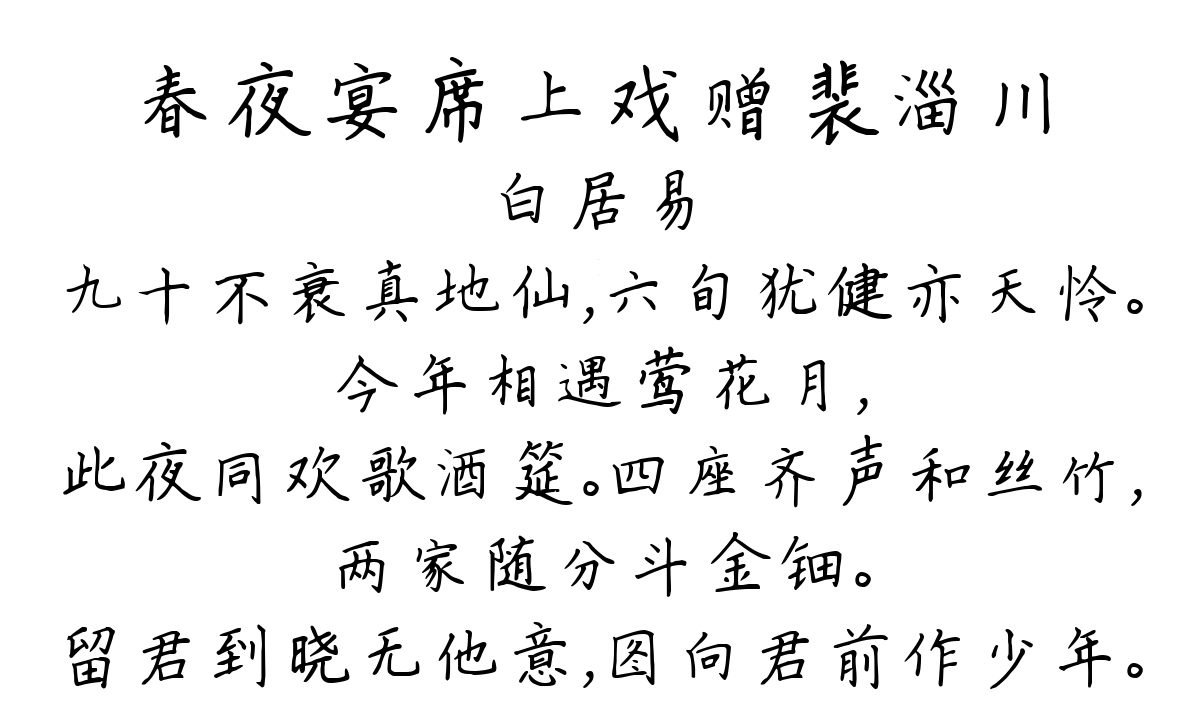 春夜宴席上戏赠裴淄川
白居易
九十不衰真地仙,六旬犹健亦天怜。
今年相遇莺花月,
此夜同欢歌酒筵。四座齐声和丝竹,
两家随分斗金钿。
留君到晓无他意,图向君前作少年。